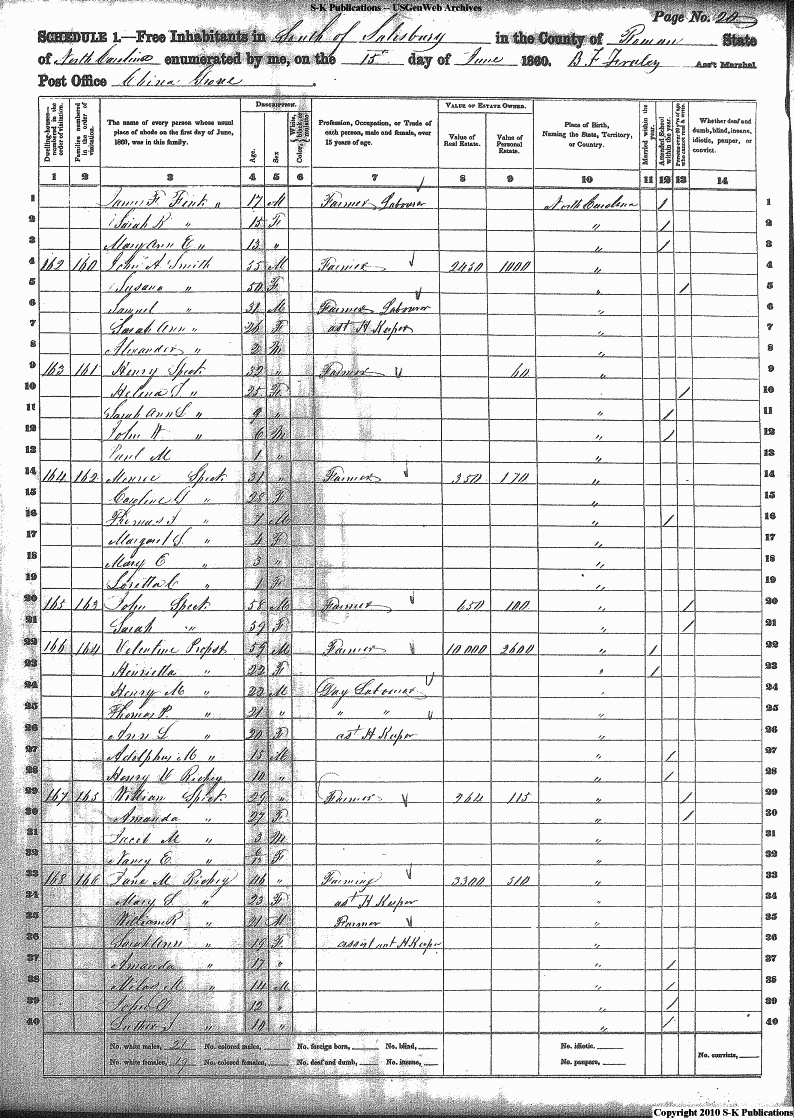 S-K Publications -- USGenWeb Archives
Page No. 20
SCHEDULE 1.—Free Inhabitants in South of Salisbury in the County of Rowan State
of North Carolina enumerated by me, on the 15th day of June 1860. B. F. Ass't Marshal
Post Office China Grove.
Dwelling-houses numbered in the order of visitation. Families numbered in the order of visitation. The name of every person whose usual place of abode on the first day of June, 1860, was in this family. DESCRIPTION. Age. Sex. Color, White, black, or mulatto. Profession, Occupation, or Trade of each person, male and female, over 15 years of age. VALUE OF ESTATE OWNED. Value of Real Estate. Value of Personal Estate. Place of Birth, Naming the State, Territory, or Country. Married within the year. Attended School within the year. Persons over 20 y'rs of age who cannot read & write. Whether deaf and dumb, blind, insane, idiotic, pauper, or convict.
1 2 3 4 5 6 7 8 9 10 11 12 13 14
1 James F. Fink " 17 M Farmer Labourer North Carolina / 1
2 Sarah R " 15 F " / 2
3 Mary Ann E " 13 " " / 3
4 162 160 John A Smith 55 M Farmer 2450 1000 " 4
5 Susana " 50 F " / 5
6 Samuel " 31 M Farmer Labourer " 6
7 Sarah Ann " 26 F ast H Keeper " 7
8 Alexander " 2 M " 8
9 163 161 Henry Spect 32 " Farmer 60 " 9
10 Helena " 25 F " / 10
11 Sarah Ann L " 9 " " / 11
12 John H " 6 M " / 12
13 Paul M 1 " " 13
14 164 162 Monroe Spect 31 " Farmer 350 170 " 14
15 Caroline " 28 F " 15
16 Thomas J " 7 M " / 16
17 Margaret S. " 4 F " 17
18 Mary E " 3 " " 18
19 Loretta C " 1 F " 19
20 165 163 John Spect 58 M Farmer 650 100 " / 20
21 Sarah " 59 F " / 21
22 166 164 Valentine Propst 59 M Farmer 10000 2600 " / 22
23 Henrietta " 22 F " / 23
24 Henry M " 22 M Day Labourer " 24
25 Thomas P. " 21 " " " " 25
26 Ann L " 20 F ast H Keeper " 26
27 Adolphus M " 15 M " / 27
28 Henry Richey 10 " " / 28
29 167 165 William Spect 29 " Farmer 264 115 " / 29
30 Amanda " 27 F " / 30
31 Jacob M " 3 M " 31
32 Nancy E. " 6/12 F " 32
33 168 166 Jane M Richey 46 " Farming 3300 510 " 33
34 Mary L " 23 F ast H Keeper " 34
35 William R " 21 M Farmer " 35
36 Sarah Ann " 19 F assistant H Keeper " 36
37 Amanda " 17 " " / 37
38 Milas M " 14 M " / 38
39 John " 12 " " / 39
40 Luther J " 10 " " / 40
No. white males, 21 No. colored males, No. foreign born, No. blind, No. idiotic.
No. white females, 19 No. colored females, No. deaf and dumb, No. insane, No. paupers, No. convicts,
Copyright 2010 S-K Publications